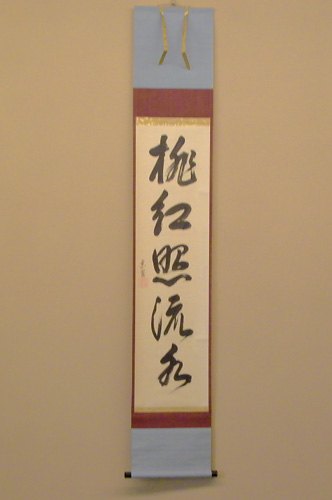 桃紅照流水